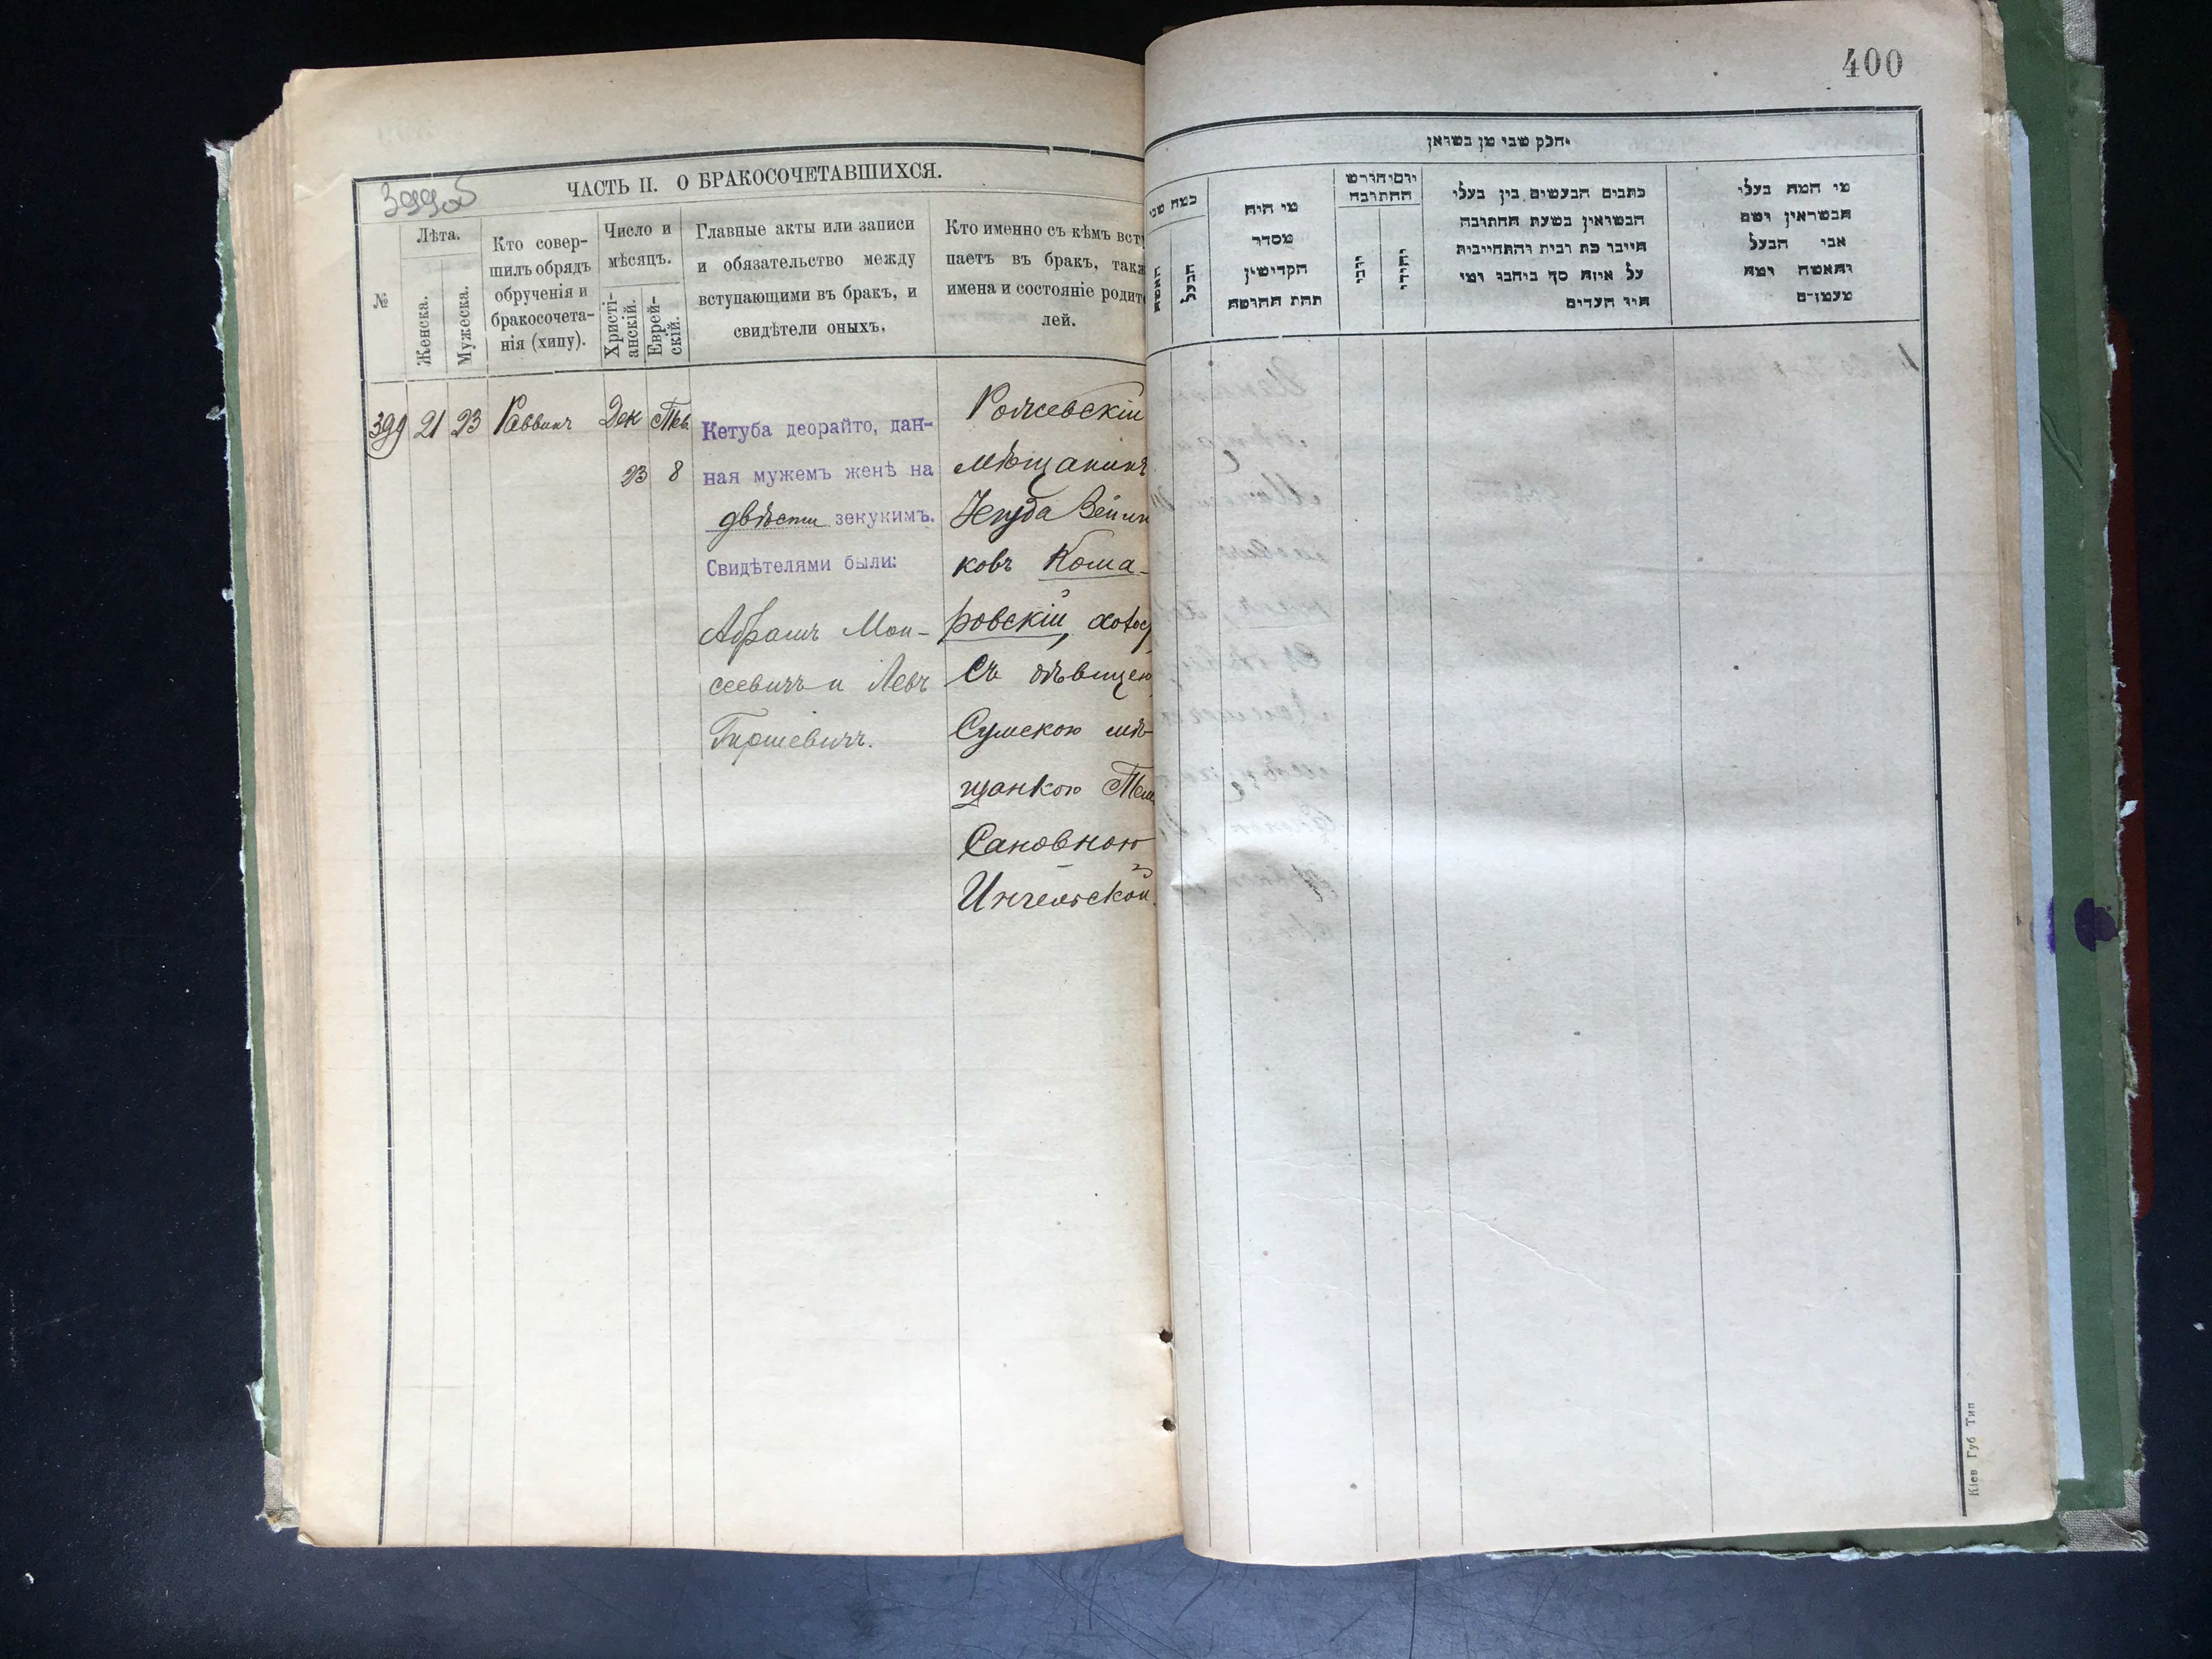 400
399об
ЧАСТЬ II. О БРАКОСОЧЕТАВШИХСЯ.
№
Лѣта.
Женска.
Мужеска.
Кто совер-
шилъ обрядъ
обрученія и
бракосочета-
нія (хипу).
Число и
мѣсяцъ.
Христі-
анскій.
Еврей-
скій.
Главные акты или записи
и обязательство между
вступающими въ бракъ, и
свидѣтели оныхъ.
Кто именно съ кѣмъ всту
паетъ въ бракъ, такж
имена и состояніе родит
лей.
399 21 23 Раввинъ Дек 23 Тев. 8
Кетуба деорайто, дан-
ная мужемъ женѣ на
двѣсти зекукимъ.
Свидѣтелями были:
Абрамъ Мои-
сеевичъ и Левъ
Гиршевичъ.
мѣщанинъ
Іегуда
ковъ Кома-
ровскій, холос
Съ дѣвицею
Сумскою мѣ-
щанкою
חלק שני מן נשואין
כמה שני
האשה
הבעל
מי היה
מסדר
הקדישין
תחת החושה
יום וחודש
החתובה
יהודי
כתבים הנעשים בין בעלי
הנשואין בשעת החתובה
על איזה סך ניתנו ומי
היו העדים
מי המה בעלי
הנשואין ושם
אבי הבעל
והאשה ומה
מעמדם
Кіев Губ Тип